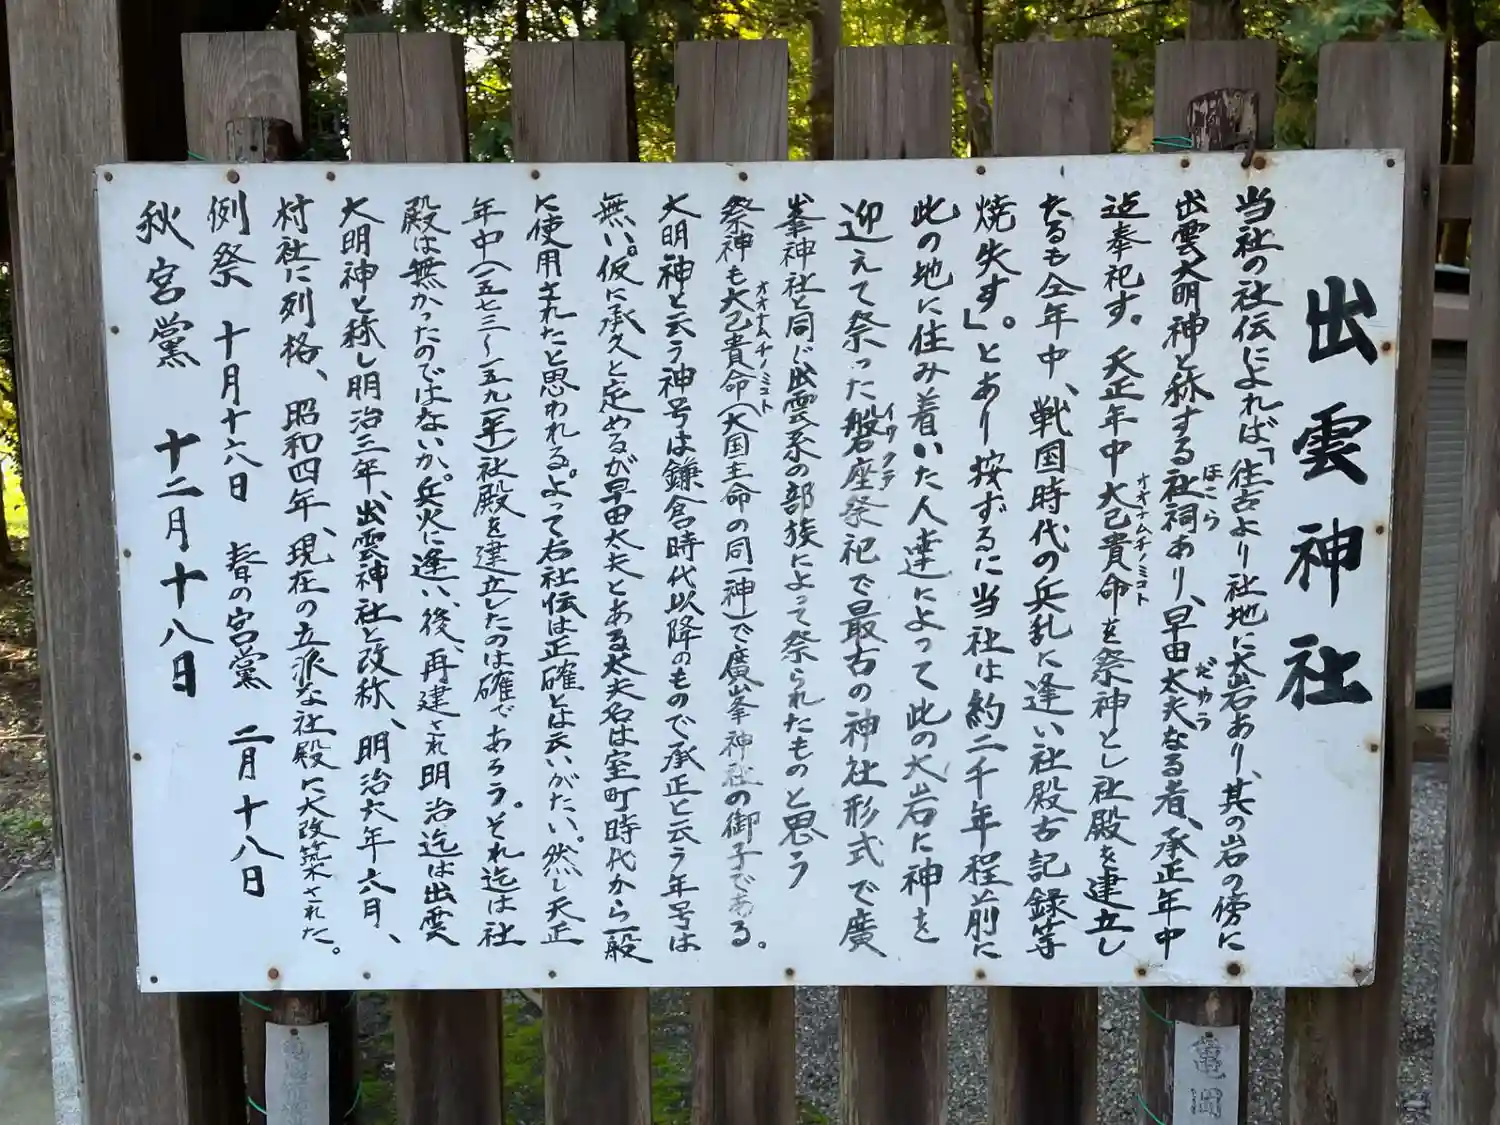 出雲神社
当社の社伝によれば「往古より社地に大岩あり、其の岩の傍に
出雲大明神と称する社祠あり、早由太夫なる者、承正年中
迄奉祀す。天正年中大己貴命を祭神とし社殿を建立し
たるも仝年中、戦国時代の兵乱に逢い社殿古記録等
焼失す」とあり按ずるに当社は約二千年程前に
此の地に住み着いた人達によって此の大岩に神を
迎えて祭った磐座祭祀で最古の神社形式で廣
峯神社と同じ出雲系の部族によって祭られたものと思う
祭神も大己貴命(大国主命の同一神)で廣峯神社の御子である。
大明神と云う神号は鎌倉時代以降のもので承正と云う年号は
無い。仮に承久と定めるが早由大夫とある太夫名は室町時代から一般
に使用されたと思われる。よって右社伝は正確とは云いがたい。然し天正
年中(一五七三〜一五九一年)社殿を建立したのは確であろう。それ迄は社
殿は無かったのではないか。兵火に逢い、後、再建され明治迄は出雲
大明神と称し明治三年、出雲神社と改称、明治六年六月、
村社に列格、昭和四年、現在の立派な社殿に大改築された。
例祭 十月十六八日 春の宮黨 二月十八日
秋宮黨 十二月十八日
ほこら
だゆう
オオナムチノミコト
イワクラ
オオナムチノミコト
亀田